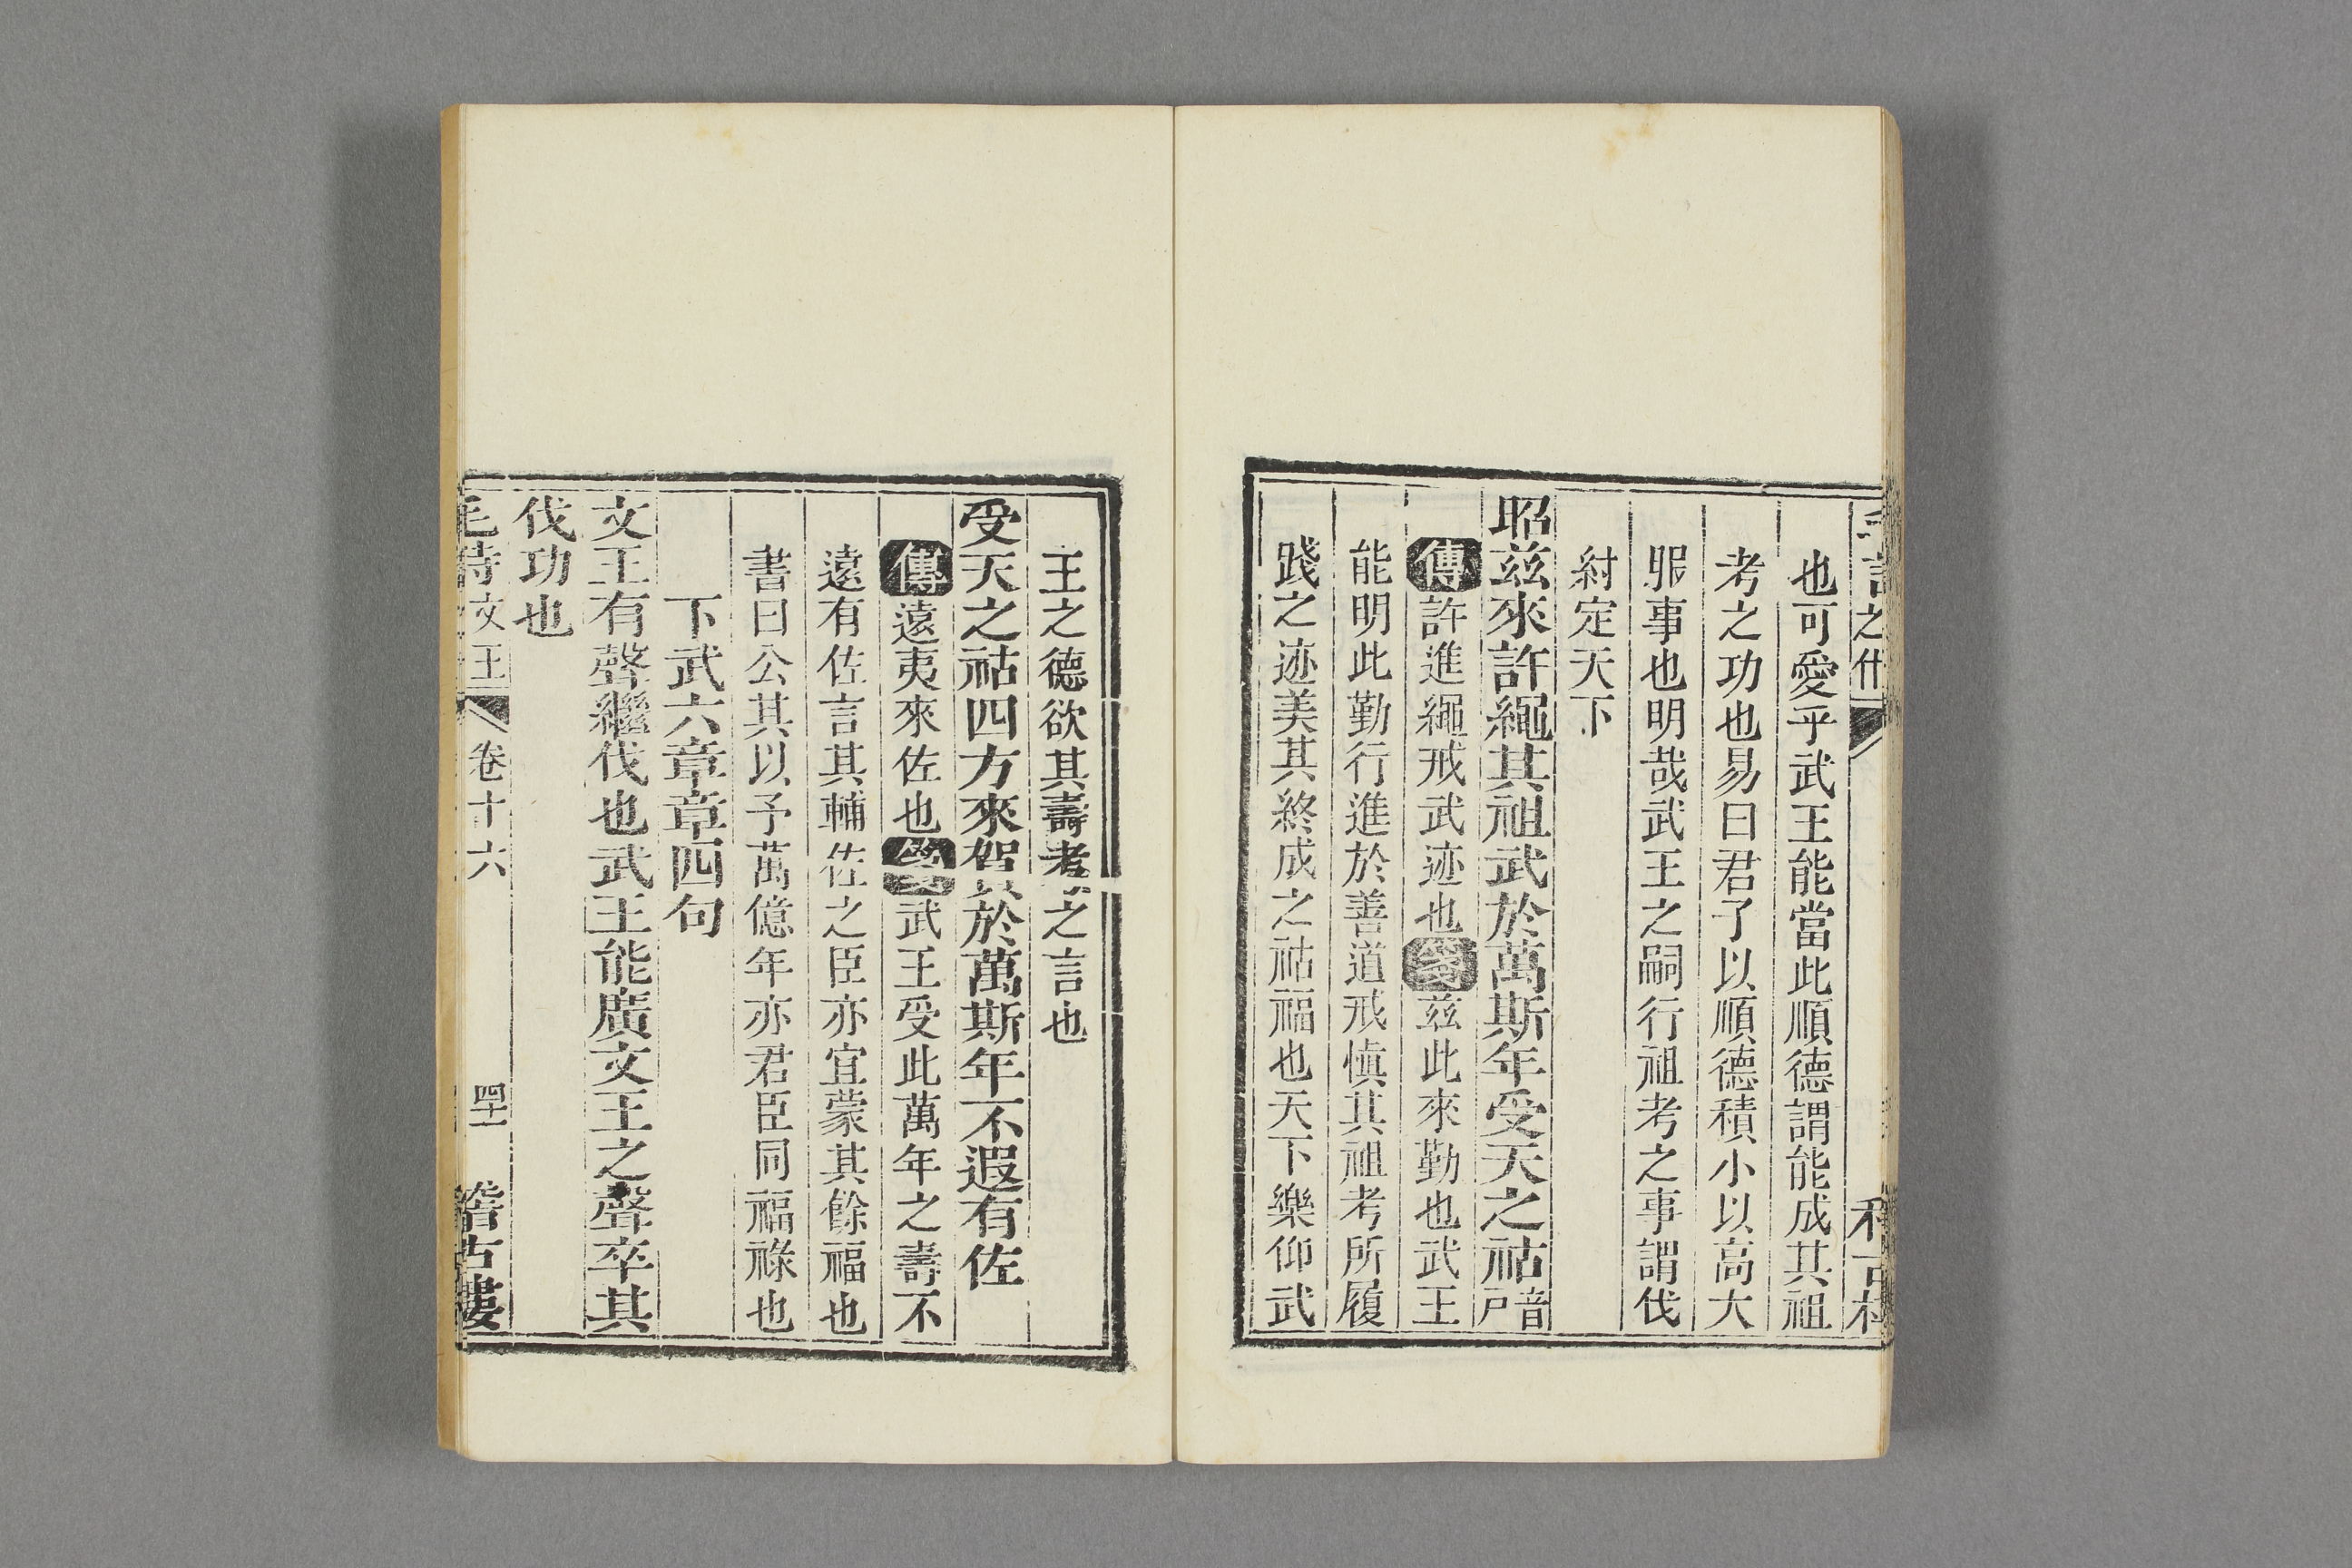 之什
也可愛乎武王能當此順德謂能成其祖
考之功也易曰君子以順德積小以高大
服事也明哉武王之嗣行祖考之事謂伐
紂定天下
昭茲來許繩其祖武於萬斯年受天之祜音戶
傳許進繩戒武迹也箋茲此來勤也武王
能明此勤行進於善道戒慎其祖考所履
踐之迹美其終成之祜福也天下樂仰武
王之德欲其壽考之言也
受天之祜四方來賀於萬斯年不遐有佐
傳遠夷來佐也箋武王受此萬年之壽不
遠有佐言其輔佐之臣亦宜蒙其餘福也
書曰公其以予萬億年亦君臣同福祿也
下武六章章四句
文王有聲繼伐也武王能廣文王之聲卒其
伐功也
毛詩文王 卷十六 四十一 稽古樓